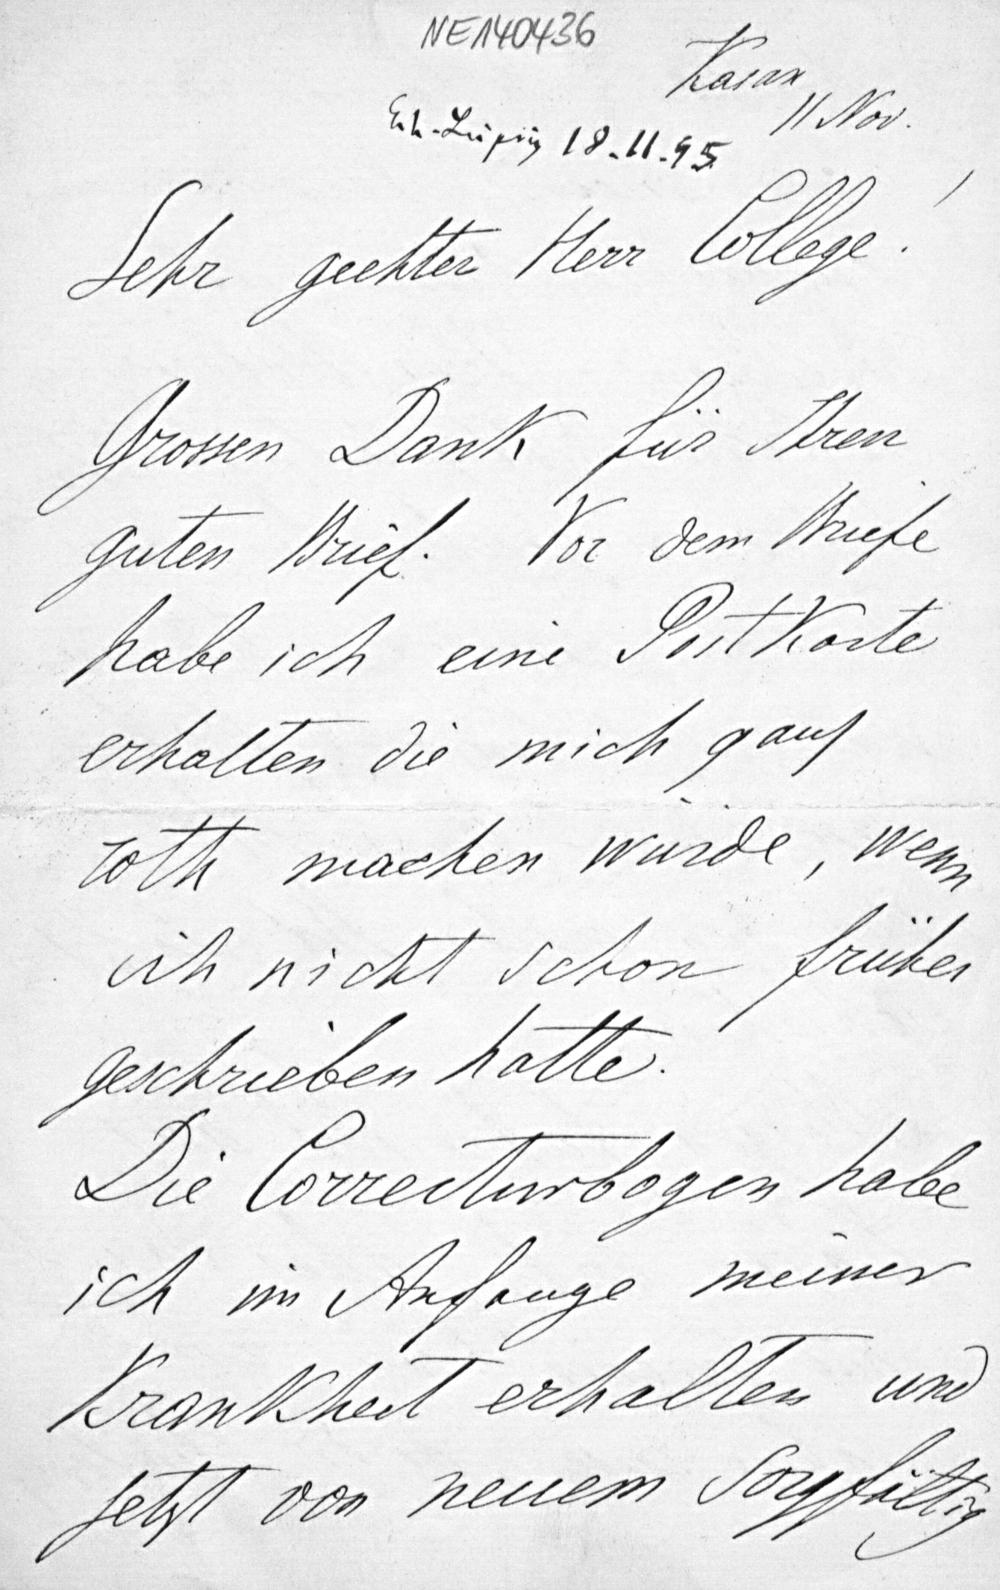 NE140436
Kasan
11 Nov.
Erh. Leipzig 18.11.95
Sehr geehter Herr College!
Grossen Dank für Ihren
guten Brief. Vor dem Briefe
habe ich eine PostKarte
erhalten die mich ganz
roth machen würde, wenn
ich nicht schon früher
geschrieben hätte.
Die Correcturbogen habe
ich im Anfange meiner
Krankheit erhalten und
jetzt von neuem sorgfältig